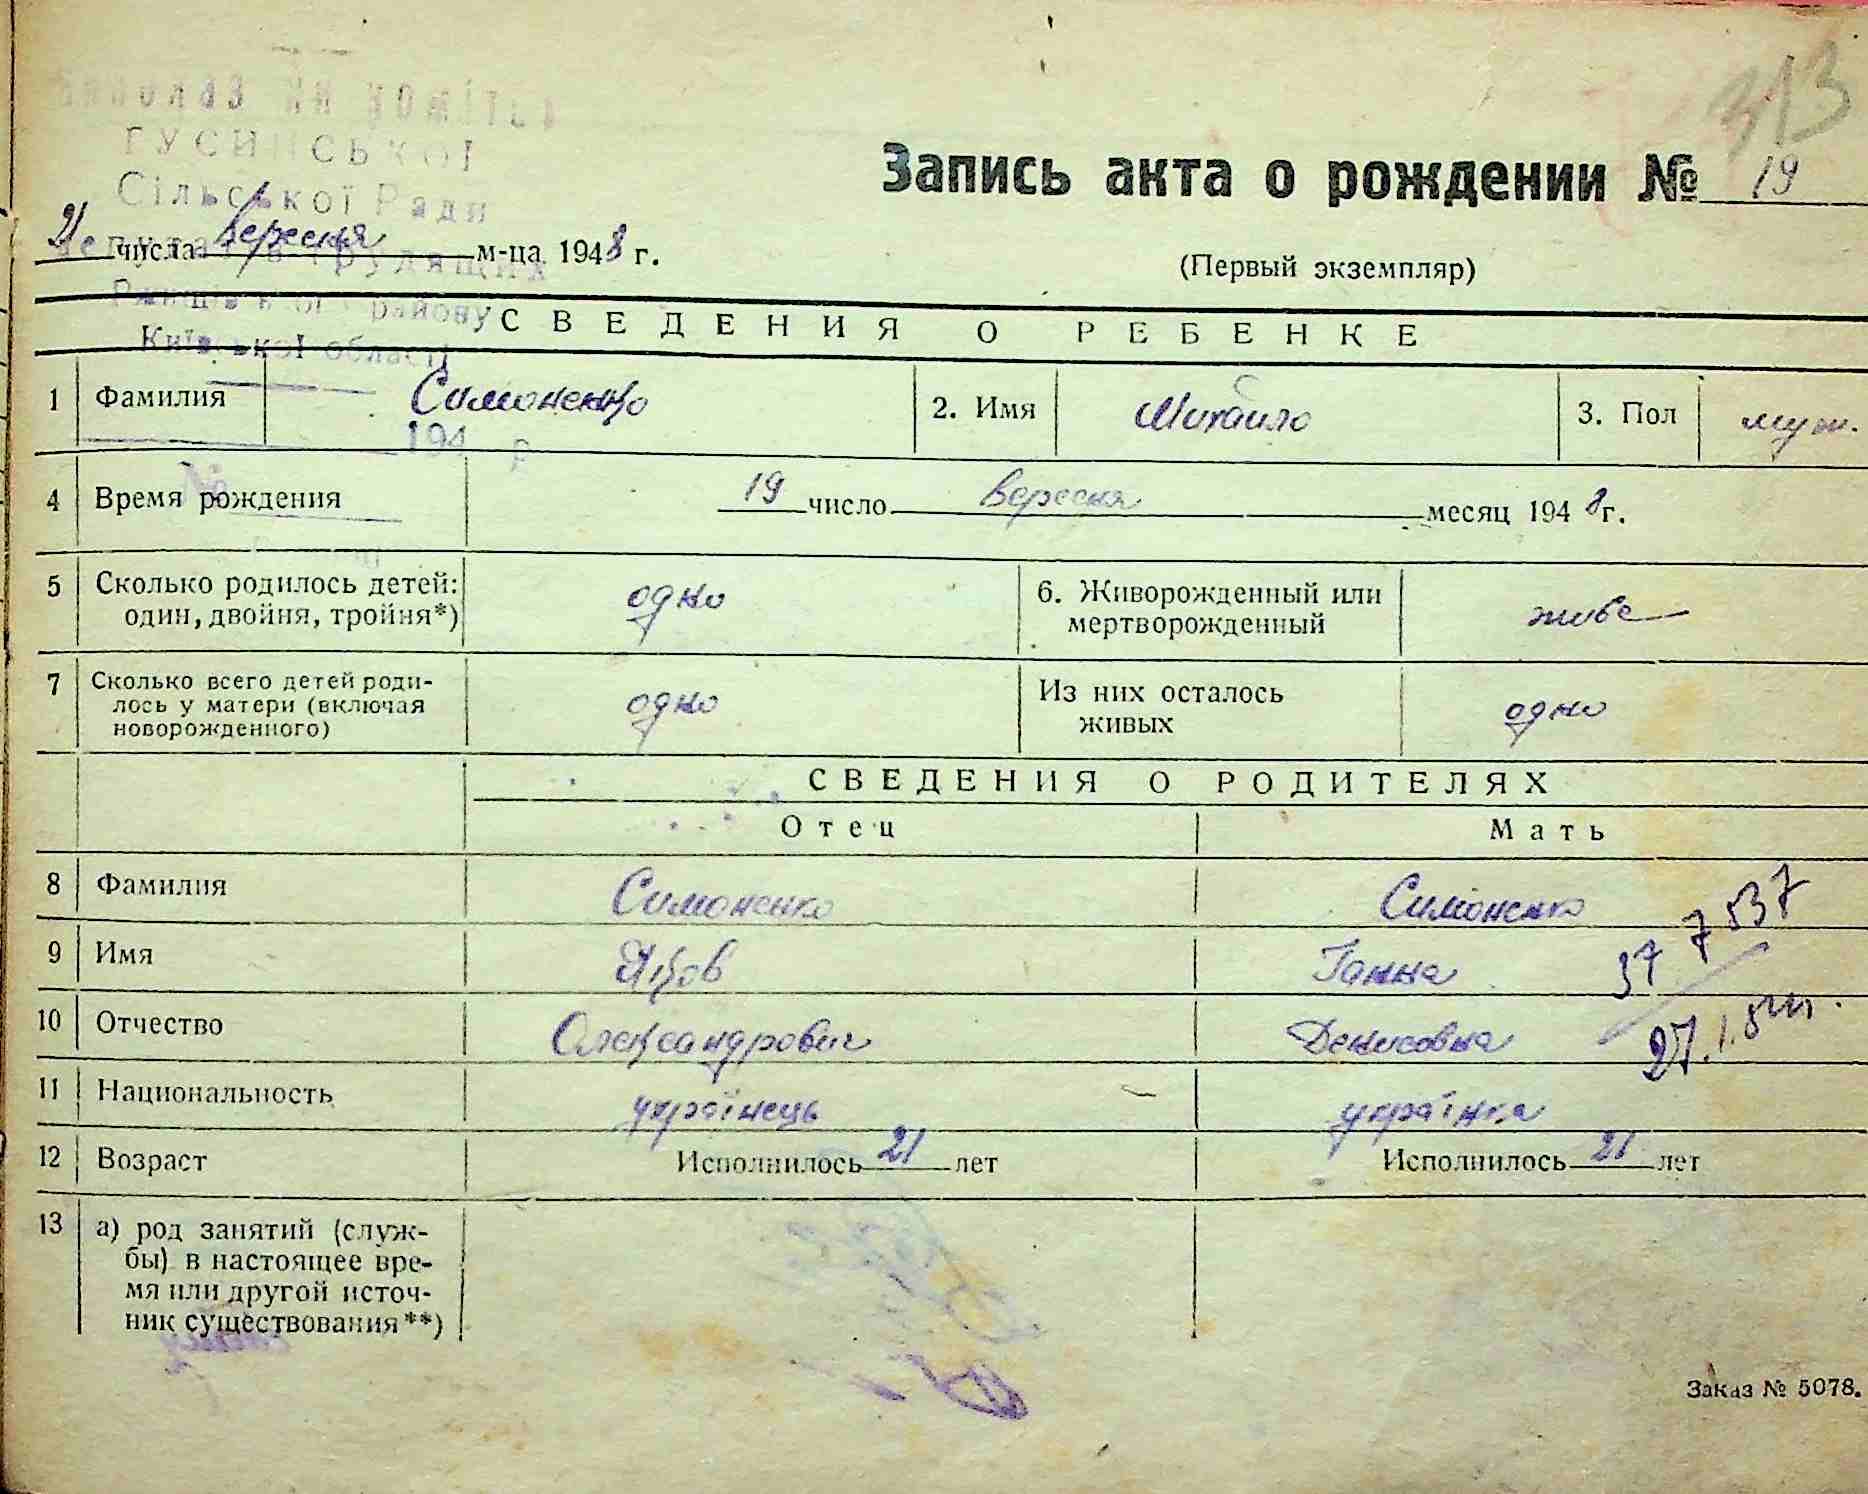 313
ГУСИНСЬКОЇ
Сільської Ради
депутатів трудящих
району
Київської області
194 р
№
Запись акта о рождении № 19
21 числа вересня м-ца 1948 г.
(Первый экземпляр)
СВЕДЕНИЯ О РЕБЕНКЕ
1 Фамилия Симоненко 2. Имя Михайло 3. Пол муж.
4 Время рождения 19 число вересня месяц 1948 г.
5 Сколько родилось детей: один, двойня, тройня*) одно 6. Живорожденный или мертворожденный живе
7 Сколько всего детей роди-
лось у матери (включая
новорожденного) одно Из них осталось живых одно
СВЕДЕНИЯ О РОДИТЕЛЯХ
Отец Мать
8 Фамилия Симоненко Симоненко
9 Имя Яков Ганна
10 Отчество Олександрович Денисовна
11 Национальность українець українка
12 Возраст Исполнилось 21 лет Исполнилось 21 лет
13 а) род занятий (служ-
бы) в настоящее вре-
мя или другой источ-
ник существования**)
Заказ № 5078.